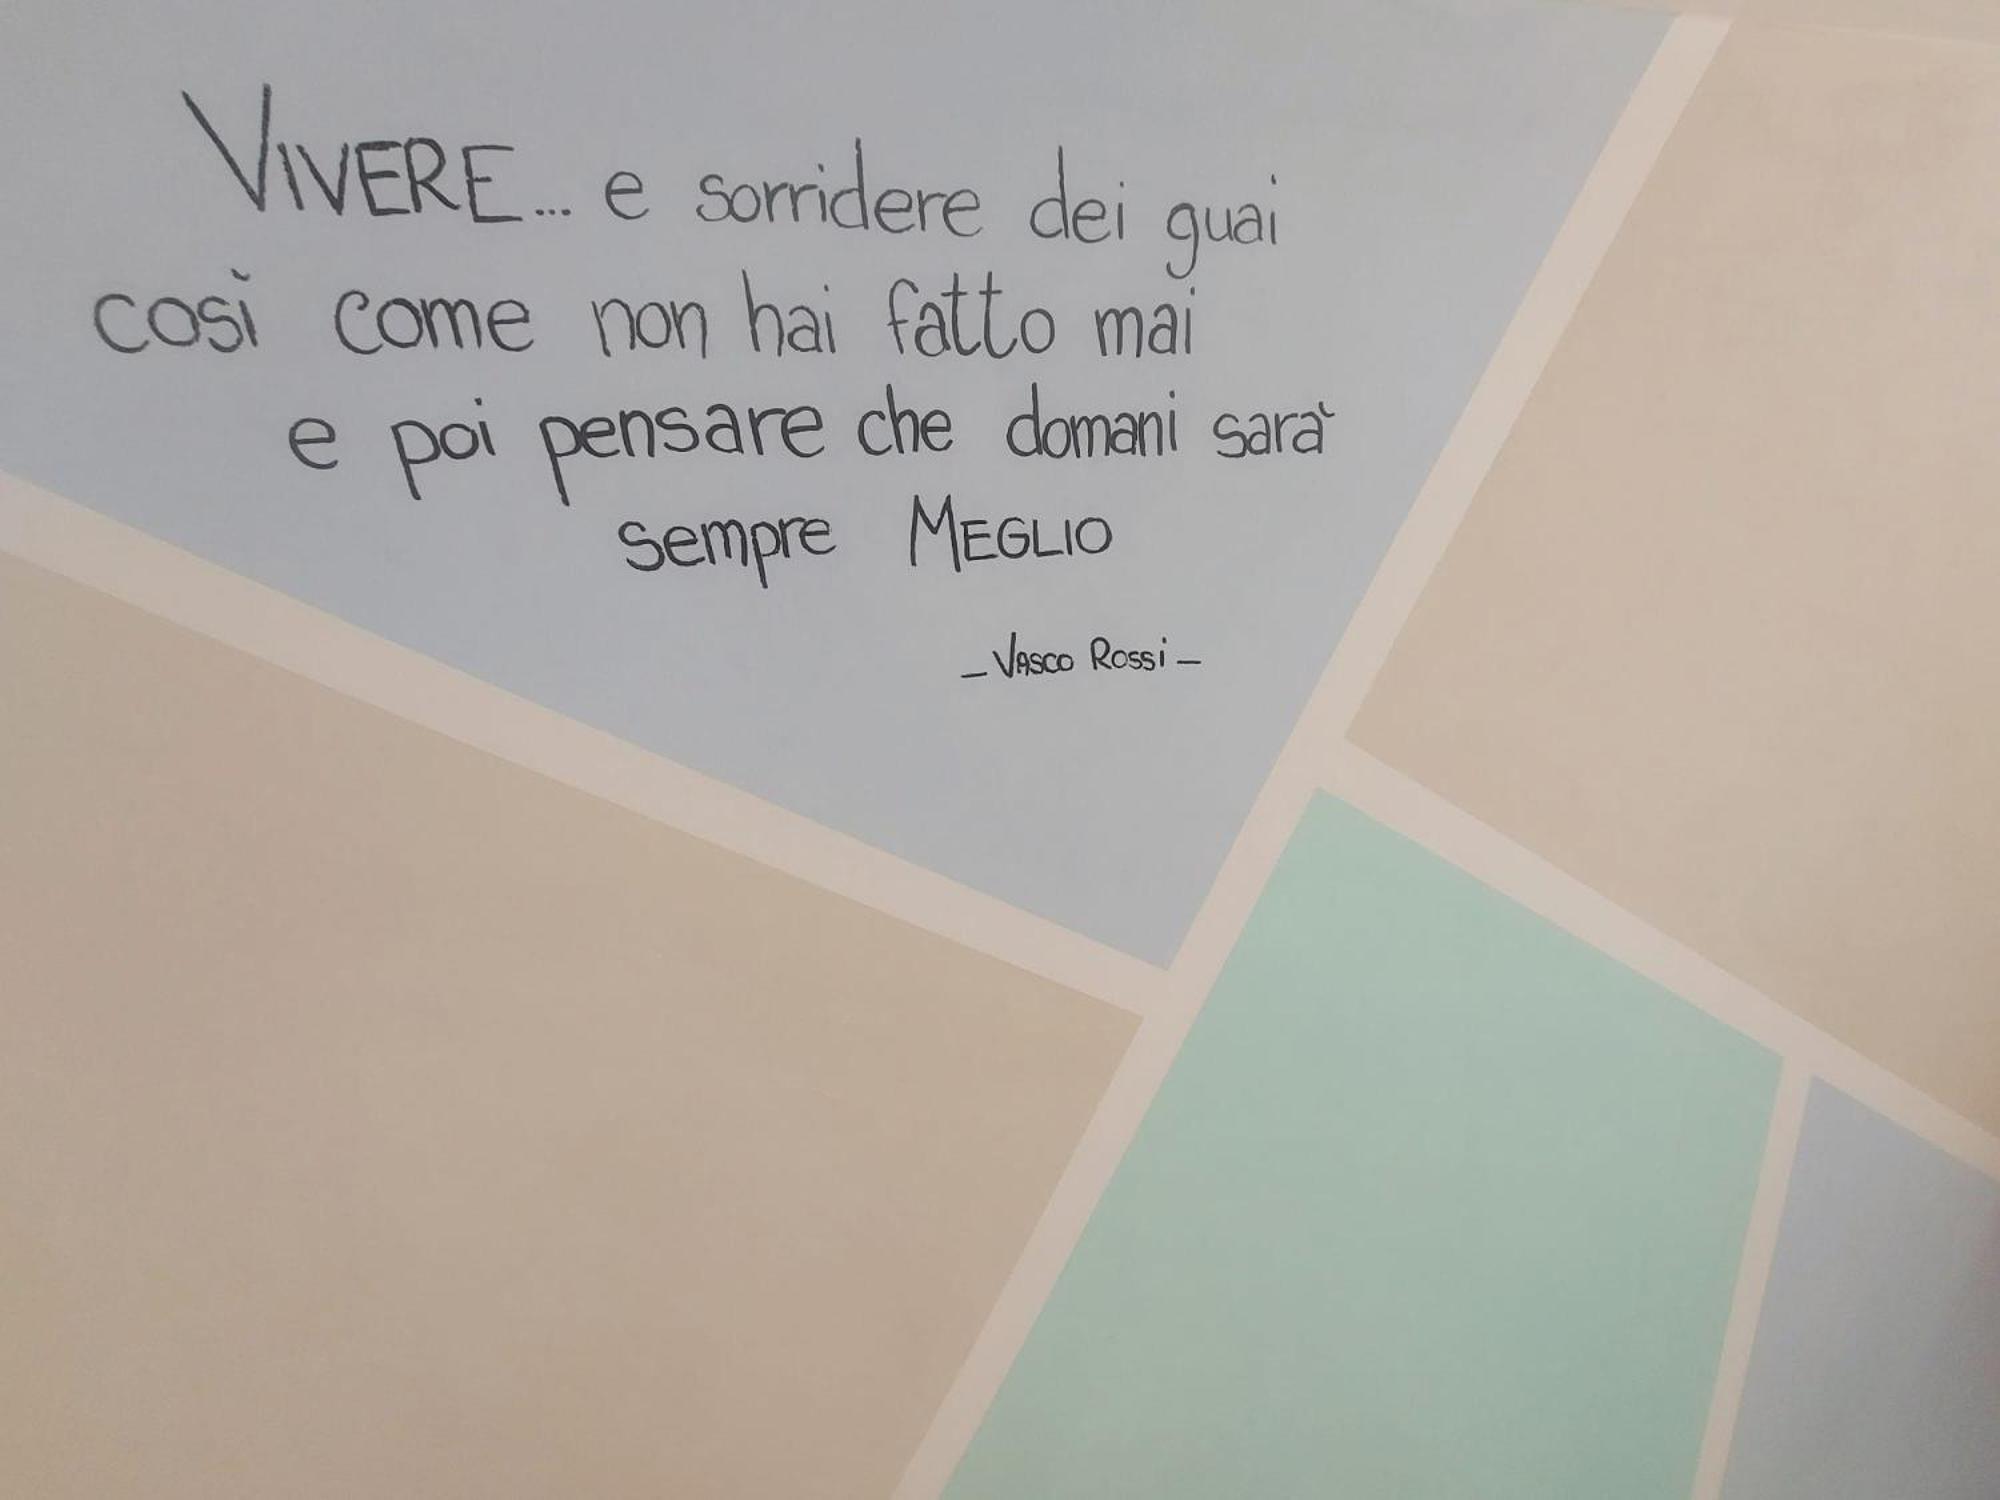 VIVERE... e sorridere dei guai
così come non hai fatto mai
e poi pensare che domani sarà
sempre MEGLIO
_ VASCO ROSSi _